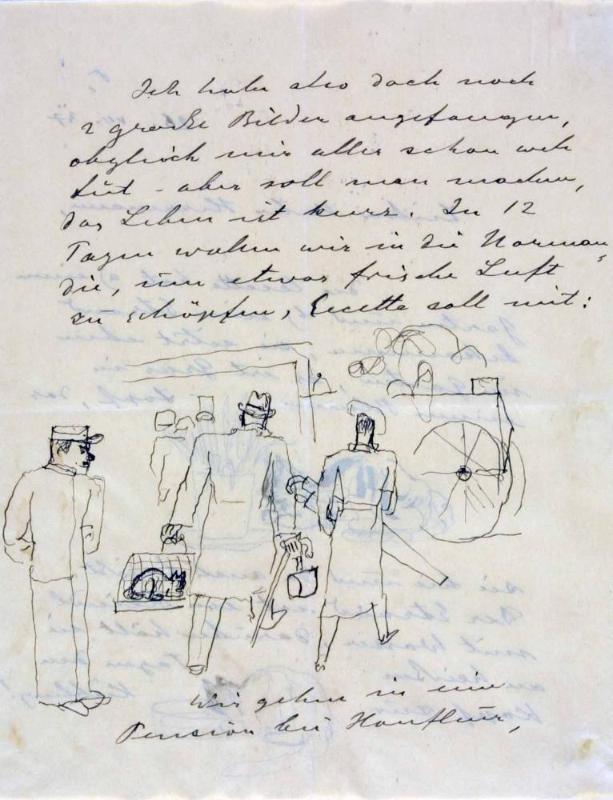 Ich habe also doch noch
2 große Bilder angefangen,
obgleich mir alles schon weh
tut - aber soll man machen,
das Leben ist kurz. In 12
Tagen wollen wir in die Norman-
die, um etwas frische Luft
zu schöpfen, Cecette soll mit:
Wir gehen in eine
Pension bei Honfleur,